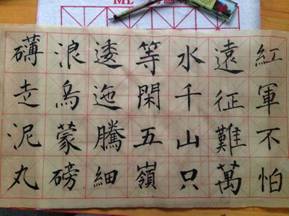 紅軍不怕
遠征難萬
水千山只
等閑五嶺
逶迤騰細
浪烏蒙磅
礴走泥丸